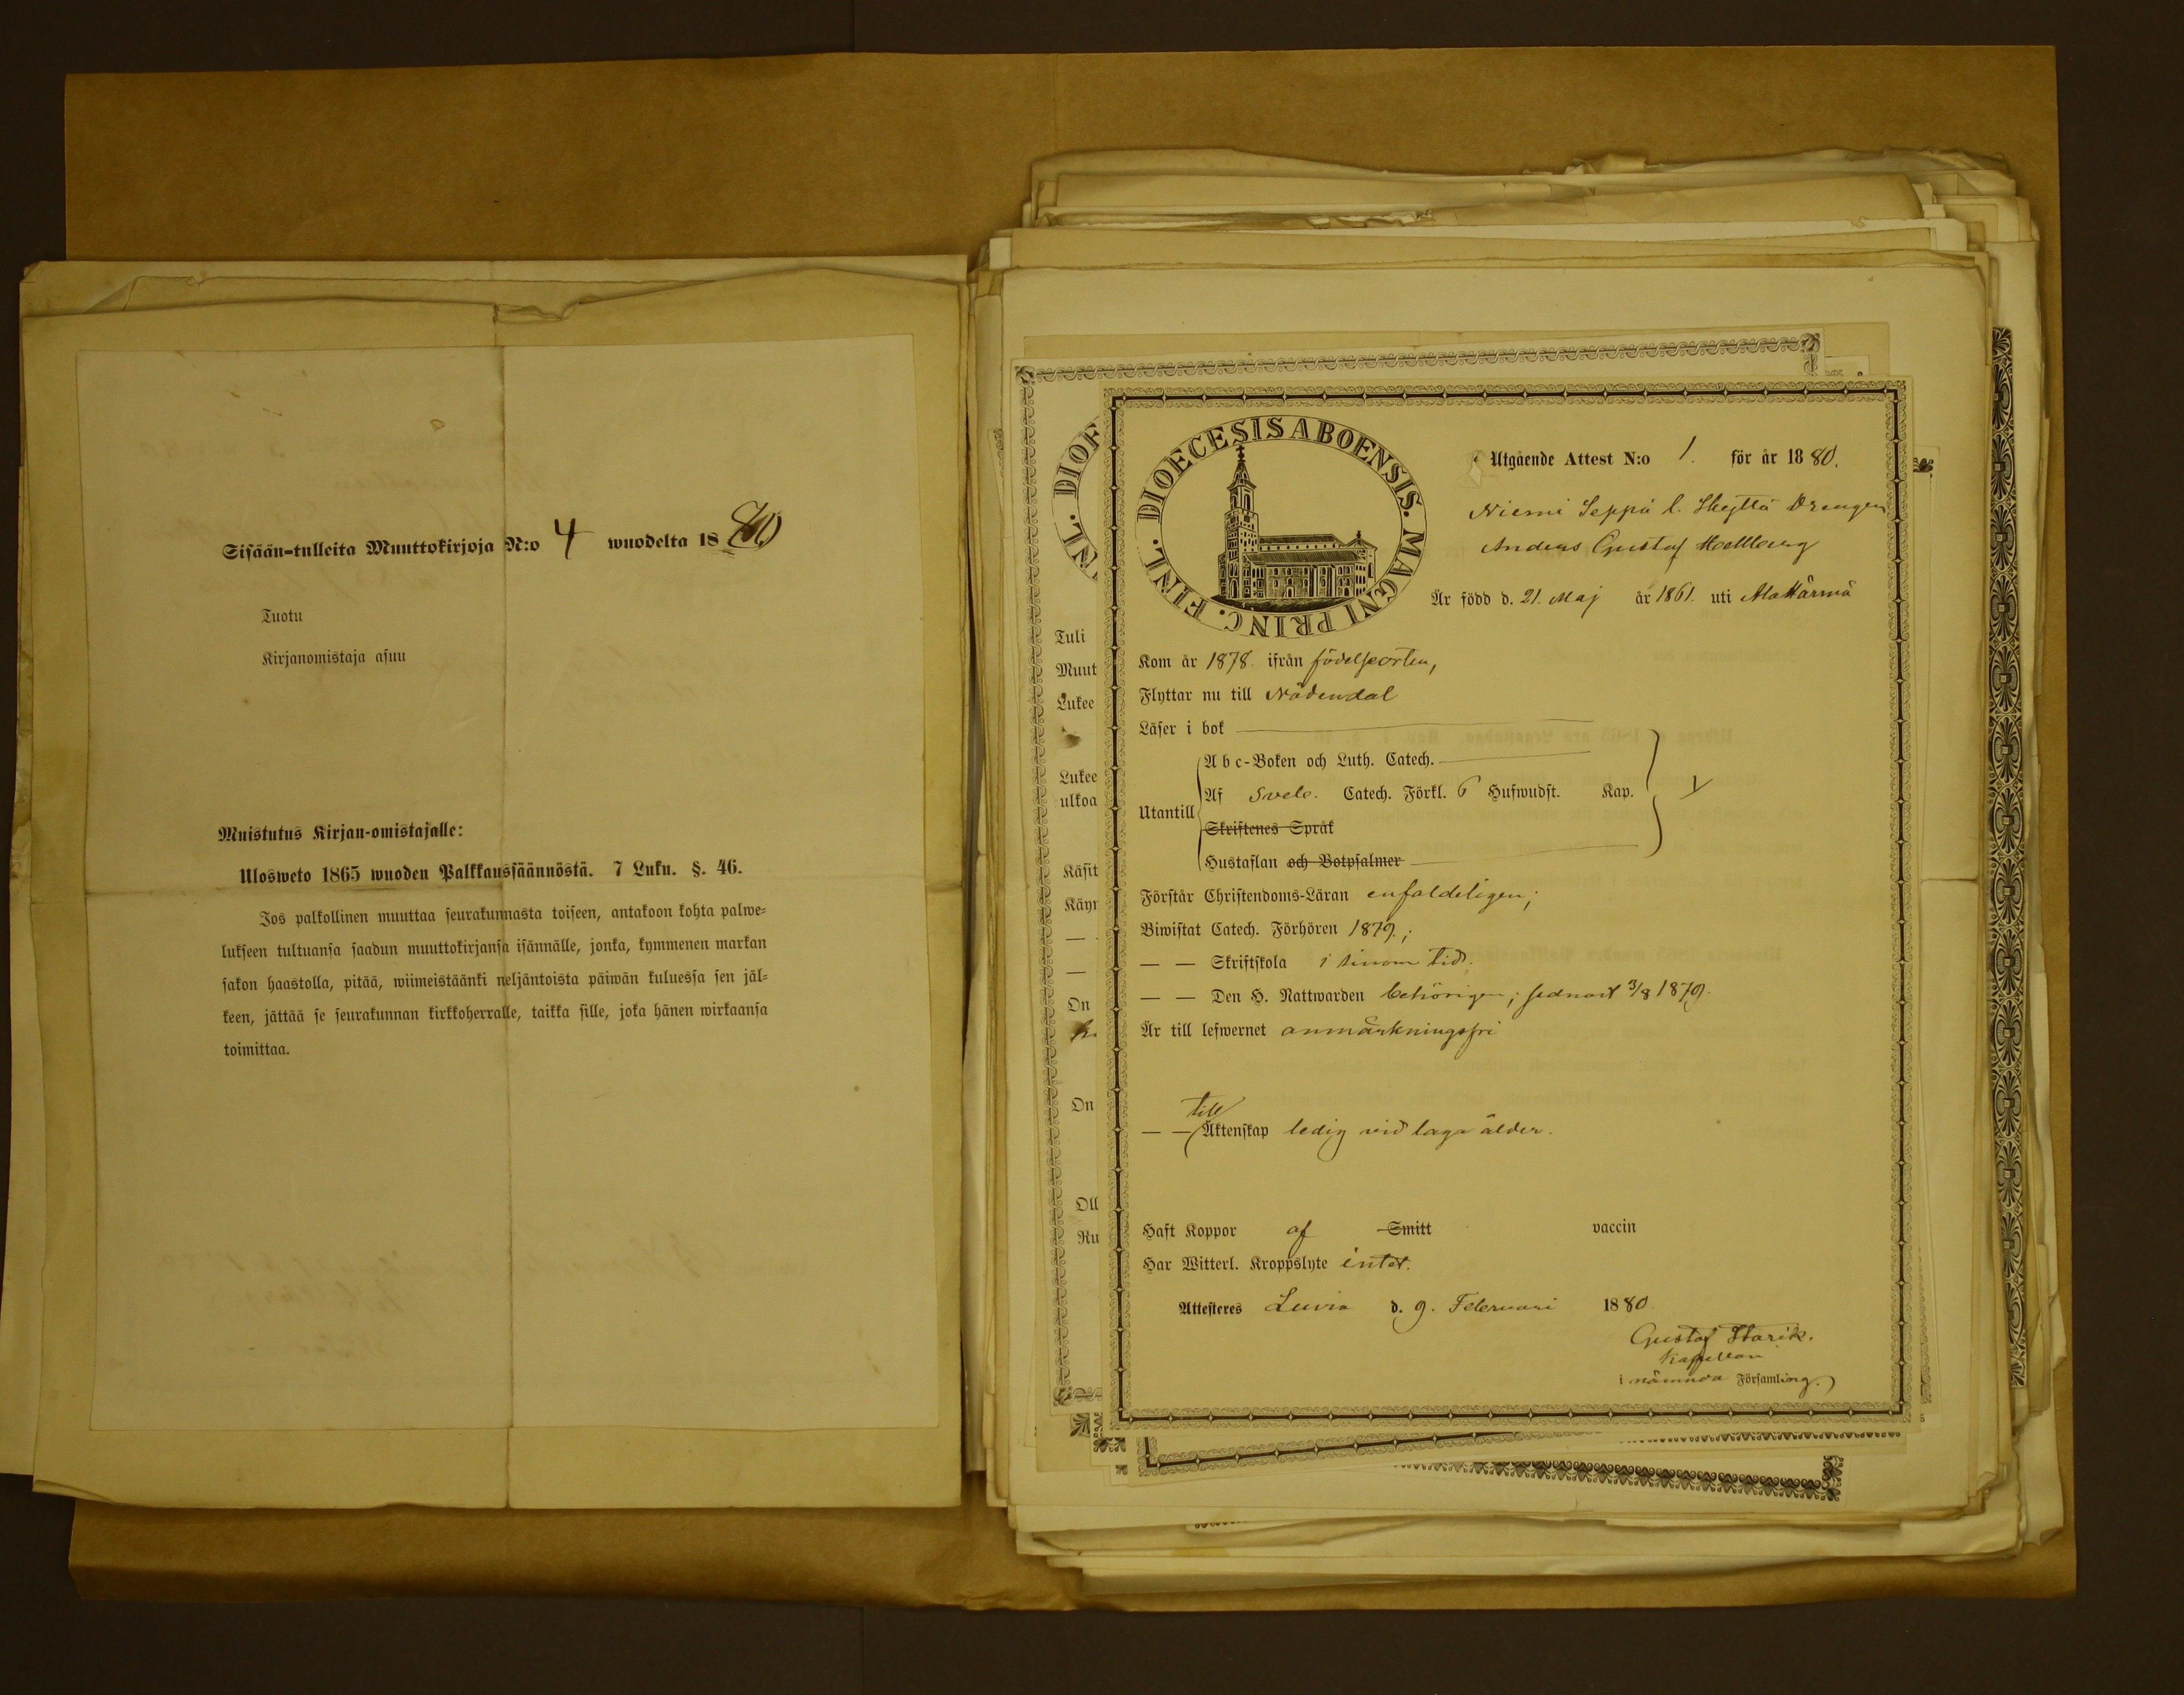 Sisään-tulleita Muuttokirjoja N:o 4 wuodelta 1880
Tuotu
Kirjanomistaja asuu
Muistutus Kirjan-omistajalle:
Ulosweto 1865 wuoden Palkkaussäännöstä. 7 Luku. §. 46.
Jos palkollinen muuttaa seurakunnasta toiseen, antakoon kohta palwe-
lukseen tultuansa saadun muuttokirjansa isännälle, jonka, kymmenen markan
sakon haastolla, pitää, wiimeistäänki neljäntoista päiwän kuluessa sen jäl-
keen, jättää se seurakunnan kirkkoherralle, taikka sille, joka hänen wirkaansa
toimittaa.
INL. DIOE
Tuli
Muut
Lukee
Lukee
ulkoa
Käsit
Käyn
On
On
Oll
Ru
DIOECESIS ABOENSIS. MAGNI PRINC. FINL.
Utgående Attest N:o 1. för år 1880.
Niemi Seppä l. Drengen
Anders Gustaf
Är född d. 21. Maj år 1861. uti AlaHärmä
Kom år 1878. ifrån födelseorten,
Flyttar nu till Nådendal
Läser i bok
Utantill
A b c-Boken och Luth. Catech.
Af Sveb. Catech. Förkl. 6 Hufwudst. Kap.
Skriftenes Språk
Hustaflan och Botpsalmer
Förstår Christendoms-Läran enfaldeligen;
Biwistat Catech. Förhören 1879.;
— — Skriftskola i sinom tid.
— — Den H. Nattwarden behörigen; sednast 3/8 1879.
Är till lefwernet anmärkningsfri
till
— — Äktenskap ledig vid laga ålder.
Haft Koppor af Smitt vaccin
Har Witterl. Kroppslyte intet.
Attesteres Luvia d. 9. Februari 1880.
Gustaf
Kapellan
i nämnda Församling.